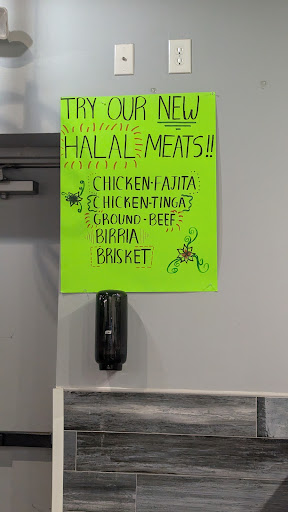 TRY OUR NEW
HALAL MEATS!!
CHICKEN-FAJITA
CHICKEN-TINGA
GROUND-BEEF
BIRRIA
BRISKET